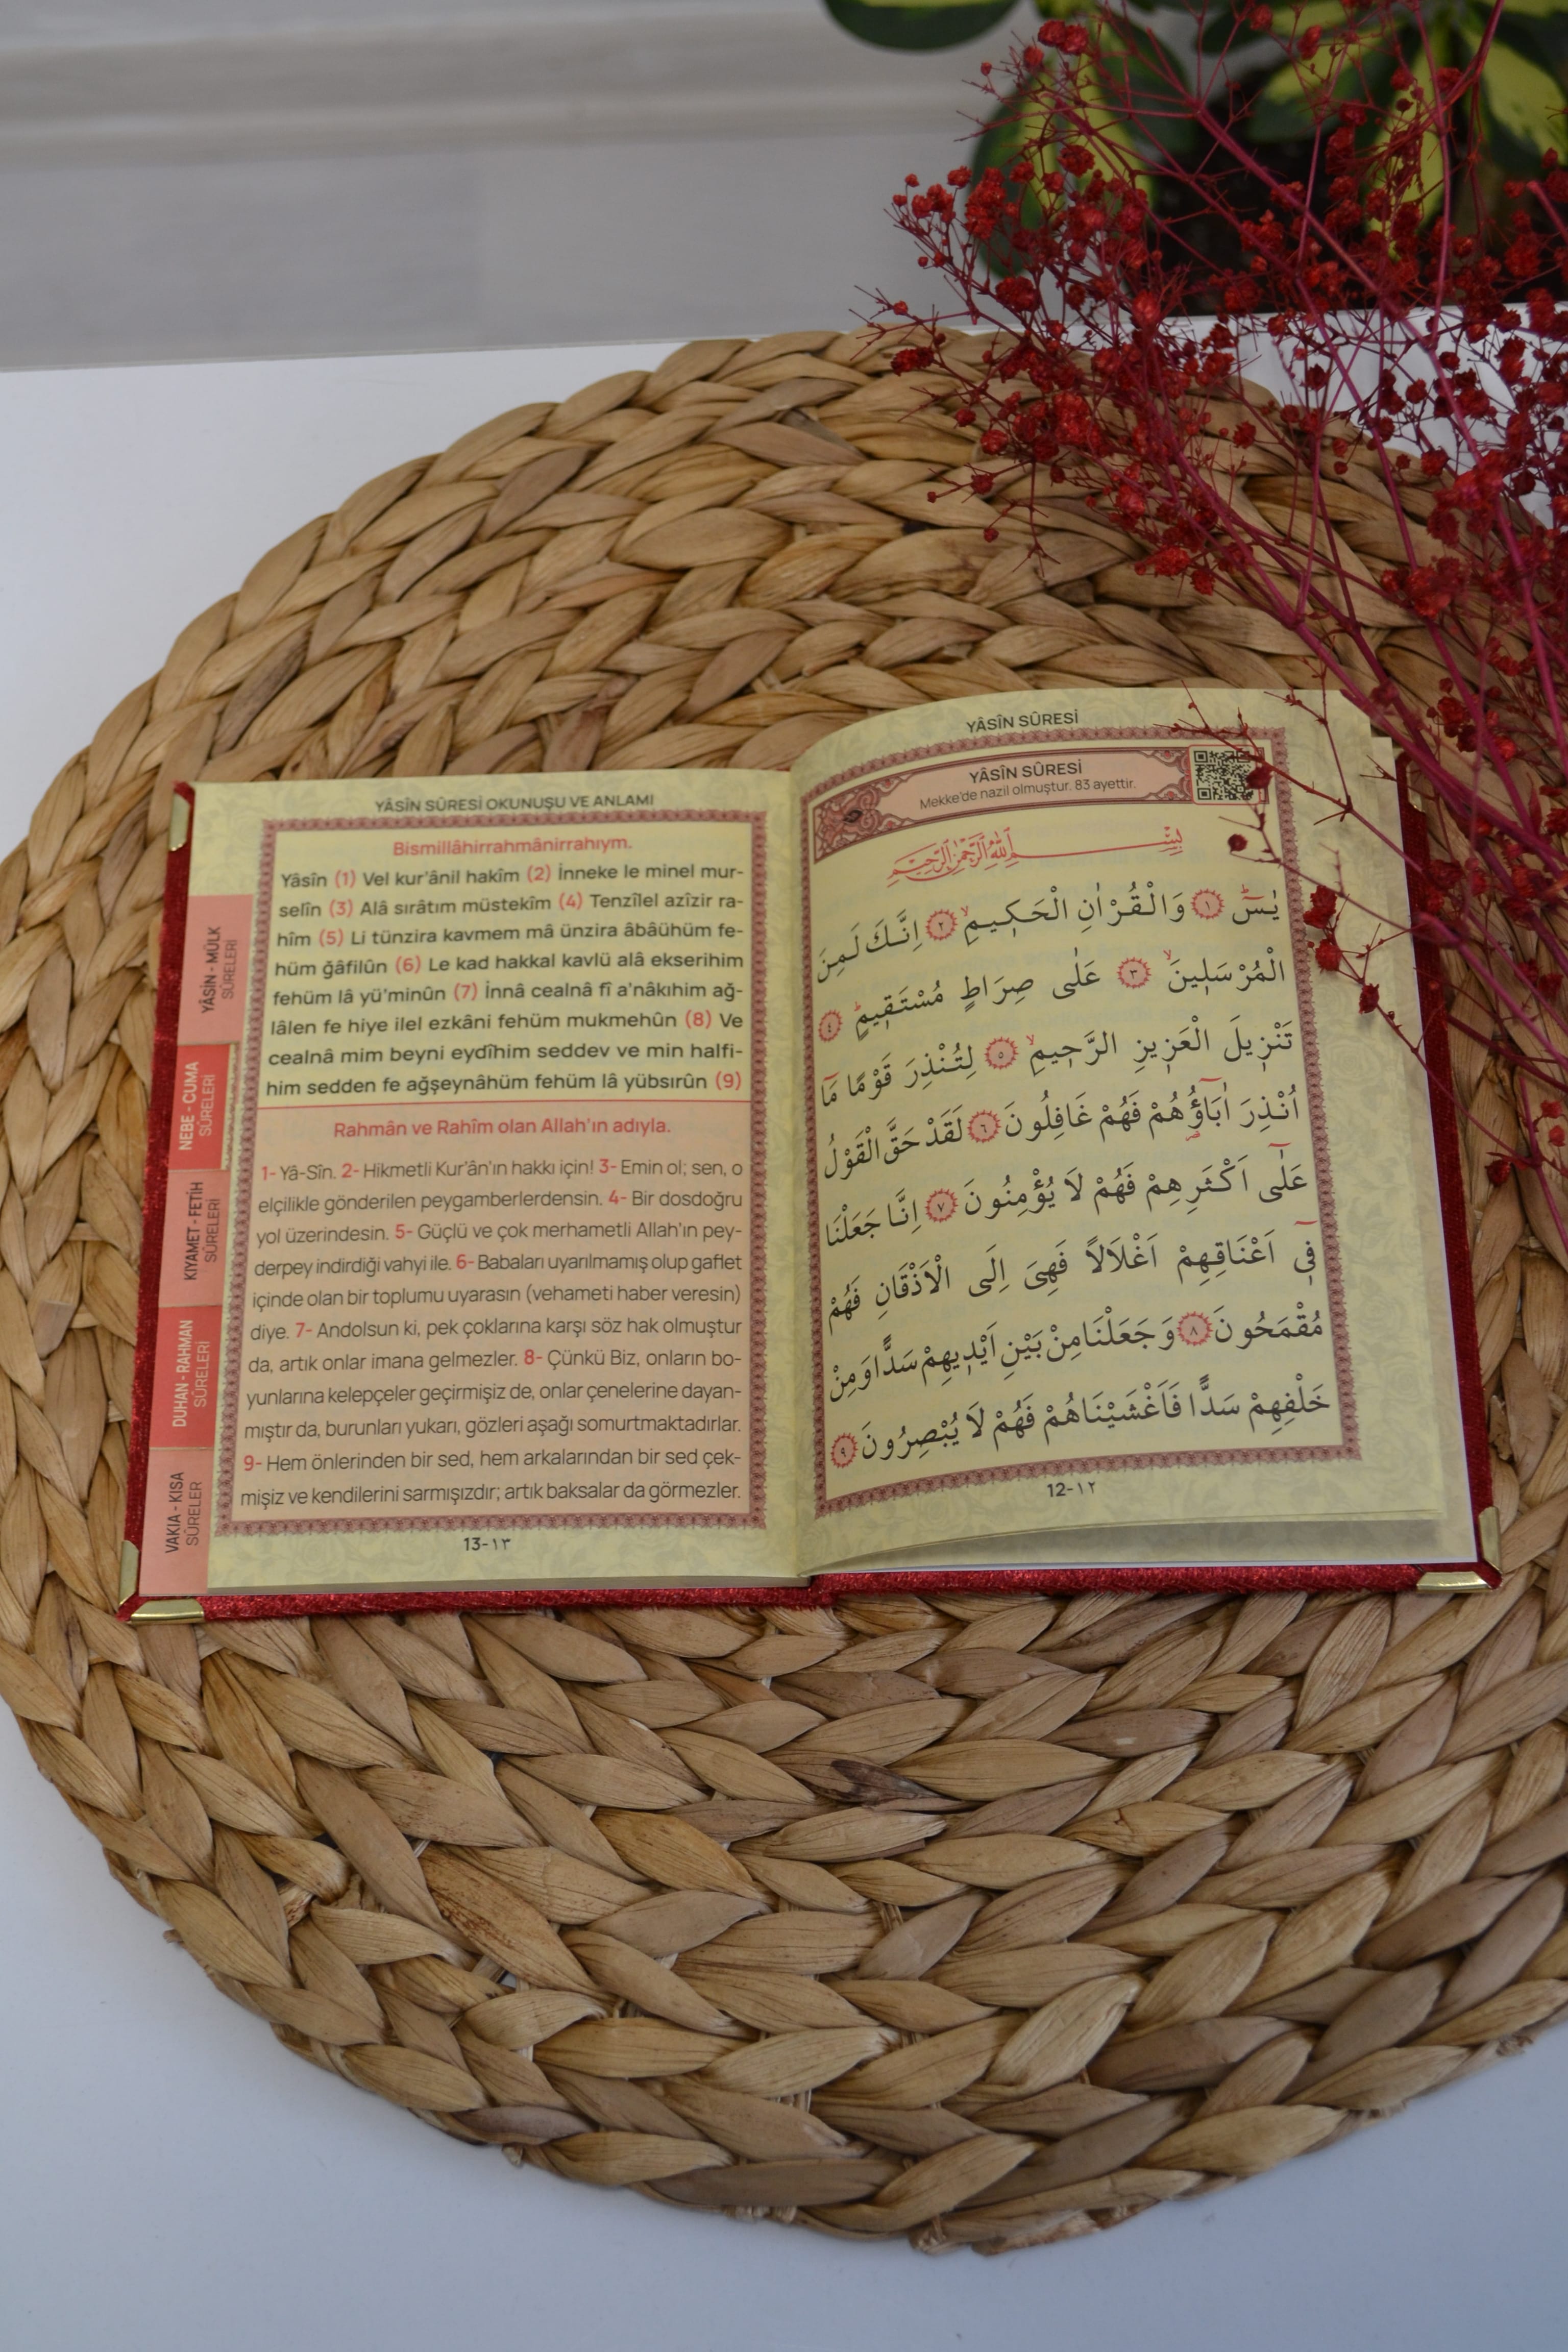 YÂSÎN SÛRESİ
YÂSÎN SÛRESİ
Mekke'de nazil olmuştur. 83 ayettir.
بِسْــــــــمِ اللّٰهِ الرَّحْمٰنِ الرَّحٖيمِ
يٰسٓ ﴿١﴾ وَالْقُرْاٰنِ الْحَكٖيمِۙ ﴿٢﴾ اِنَّكَ لَمِنَ
الْمُرْسَلٖينَۙ ﴿٣﴾ عَلٰى صِرَاطٍ مُسْتَقٖيمٍؕ ﴿٤﴾
تَنْزٖيلَ الْعَزٖيزِ الرَّحٖيمِۙ ﴿٥﴾ لِتُنْذِرَ قَوْمًا مَٓا
اُنْذِرَ اٰبَٓاؤُ۬هُمْ فَهُمْ غَافِلُونَ ﴿٦﴾ لَقَدْ حَقَّ الْقَوْلُ
عَلٰٓى اَكْثَرِهِمْ فَهُمْ لَا يُؤْمِنُونَ ﴿٧﴾ اِنَّا جَعَلْنَا
فٖٓى اَعْنَاقِهِمْ اَغْلَالًا فَهِىَ اِلَى الْاَذْقَانِ فَهُمْ
مُقْمَحُونَ ﴿٨﴾ وَجَعَلْنَا مِنْ بَيْنِ اَيْدٖيهِمْ سَدًّا وَمِنْ
خَلْفِهِمْ سَدًّا فَاَغْشَيْنَاهُمْ فَهُمْ لَا يُبْصِرُونَ ﴿٩﴾
12-١٢
YÂSÎN SÛRESİ OKUNUŞU VE ANLAMI
Bismillâhirrahmânirrahıym.
Yâsîn (1) Vel kur'ânil hakîm (2) İnneke le minel mur-
selîn (3) Alâ sırâtım müstekîm (4) Tenzîlel azîzir ra-
hîm (5) Li tünzira kavmem mâ ünzira âbâühüm fe-
hüm ğâfilûn (6) Le kad hakkal kavlü alâ ekserihim
fehüm lâ yü'minûn (7) İnnâ cealnâ fî a'nâkıhim ağ-
lâlen fe hiye ilel ezkâni fehüm mukmehûn (8) Ve
cealnâ mim beyni eydîhim seddev ve min halfi-
him sedden fe ağşeynâhüm fehüm lâ yübsırûn (9)
Rahmân ve Rahîm olan Allah'ın adıyla.
1- Yâ-Sîn. 2- Hikmetli Kur'ân'ın hakkı için! 3- Emin ol; sen, o
elçilikle gönderilen peygamberlerdensin. 4- Bir dosdoğru
yol üzerindesin. 5- Güçlü ve çok merhametli Allah'ın pey-
derpey indirdiği vahyi ile. 6- Babaları uyarılmamış olup gaflet
içinde olan bir toplumu uyarasın (vehameti haber veresin)
diye. 7- Andolsun ki, pek çoklarına karşı söz hak olmuştur
da, artık onlar imana gelmezler. 8- Çünkü Biz, onların bo-
yunlarına kelepçeler geçirmişiz de, onlar çenelerine dayan-
mıştır da, burunları yukarı, gözleri aşağı somurtmaktadırlar.
9- Hem önlerinden bir sed, hem arkalarından bir sed çek-
mişiz ve kendilerini sarmışızdır; artık baksalar da görmezler.
13-١٣
YÂSİN - MÜLK
SÛRELERİ
NEBE - CUMA
SÛRELERİ
KIYAMET - FETİH
SÛRELERİ
DUHAN - RAHMAN
SÛRELERİ
VAKIA - KISA
SÛRELER